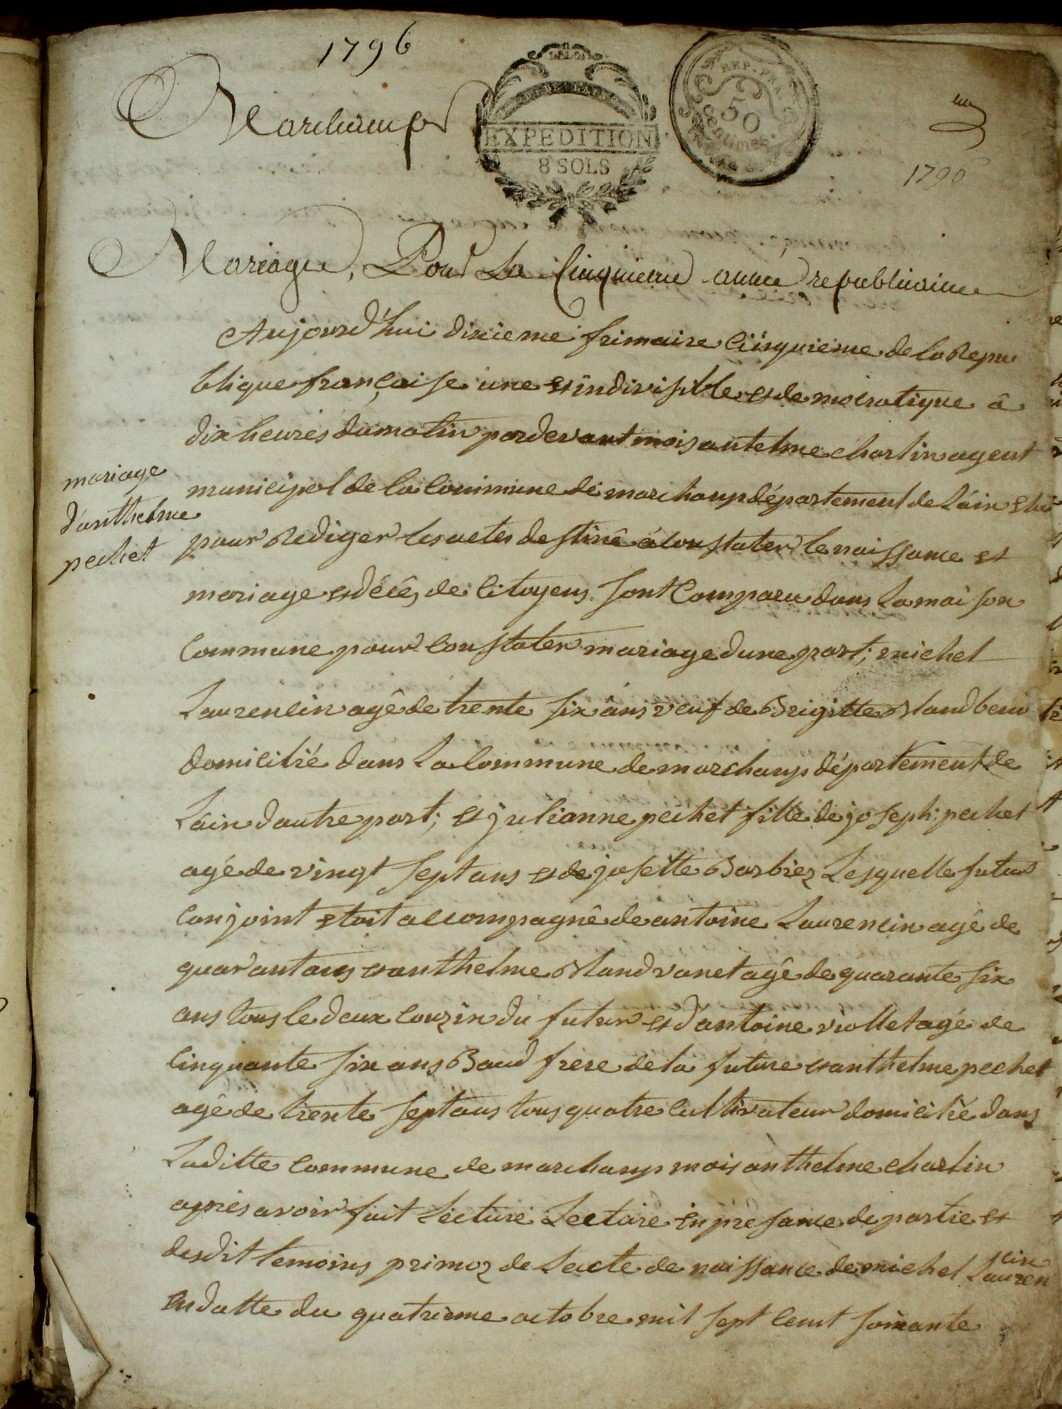 1796
Marchamp
EXPEDITION
8 SOLS
REP. FRA.
50
Centimes
1796
Mariage, Pour La Cinquieme année republicaine
Aujourd'hui dixieme frimaire Cinquieme de la Repu
blique française une et indivisible et democratique à
dix heures du matin pardevant mois antelme charlin agent
municipal de la Commune de marchamp département de Láin élu
mariage
d'anthelme
pechet
pour Rediger les actes destiné à Constater le naissance et
mariage et décês de Citoyens sont Comparu dans La maison
Commune pour Constater mariage dune part; michel
Laurencin agê de trente six ans veuf de Brigitte
domicilié dans La Commune de marchamp département de
Láin dautre part; et julianne pechet fille de joseph pechet
agé de vingt sept ans et de josette Barbier Lesquelle futur
Conjoint etoit accompagnê de antoine Laurencin agé de
quarantans et anthelme agê de quarante six
ans tous le deux Couzin du futur et d'antoine viollet agé de
Cinquante six ans Baud frere de la future et anthelme pechet
agê de trente sept ans tous quatre Cultivateur domicilié dans
Laditte Commune de marchamp mois anthelme charlin
aprés avoir fait Lecture en presance de partie et
desdit temoins primoz de Lacte de naissance de michel Lauren
cin
en datte du quatrieme octobre mil sept Cent soixante